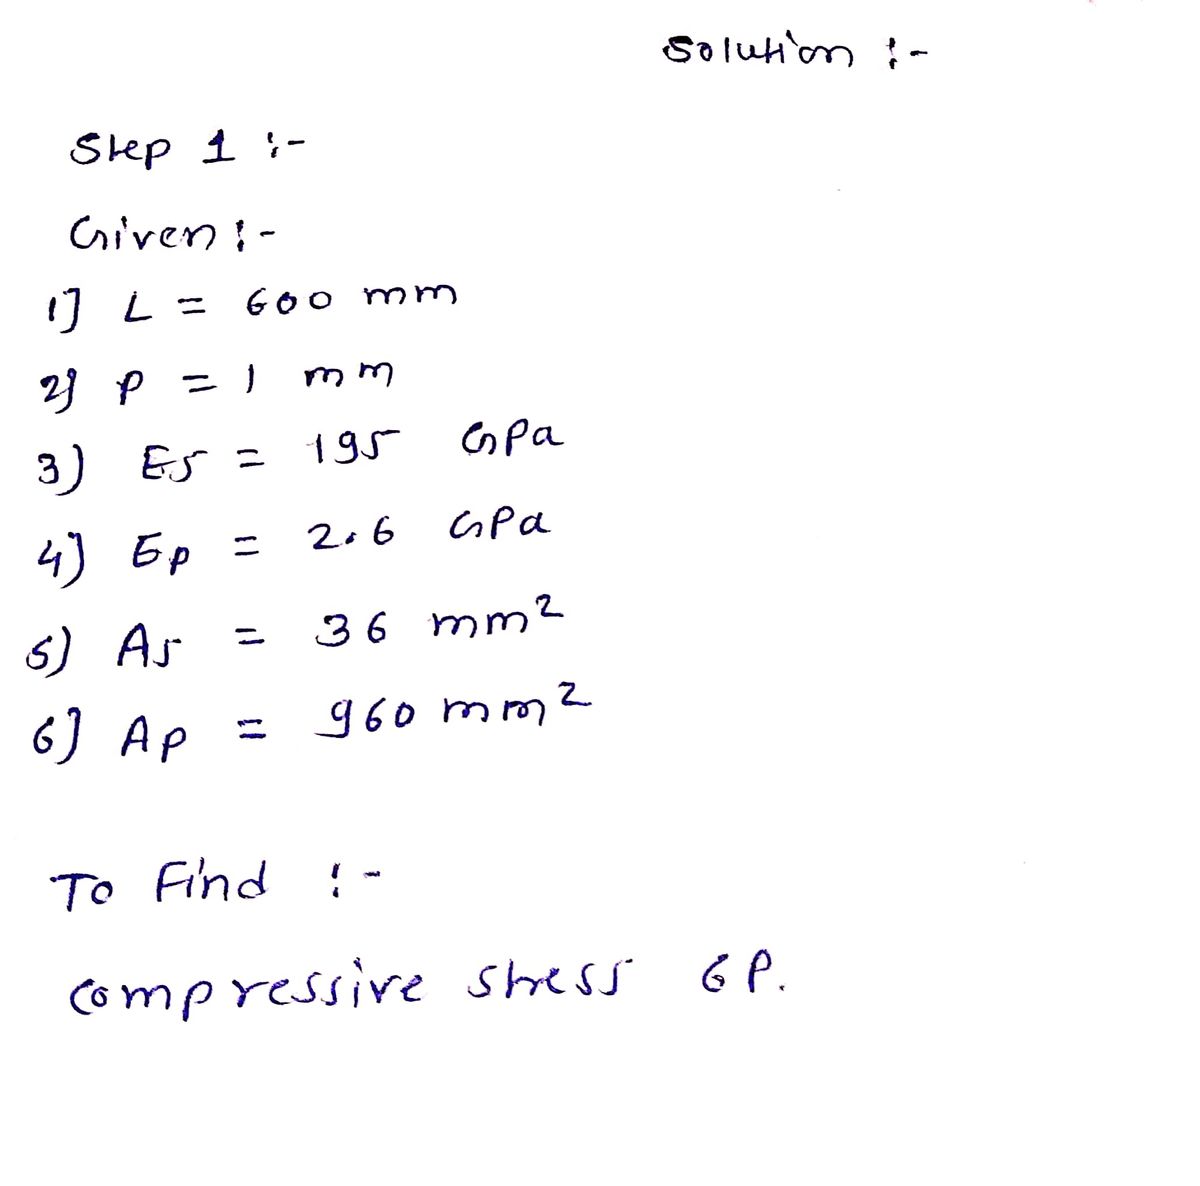 Solution :-
Step 1 :-
Given :-
1] L = 600 mm
2] P = 1 mm
3) Es = 195 GPa
4) Ep = 2.6 GPa
5) As = 36 mm²
6] Ap = 960 mm²
To Find :-
compressive stress σP.